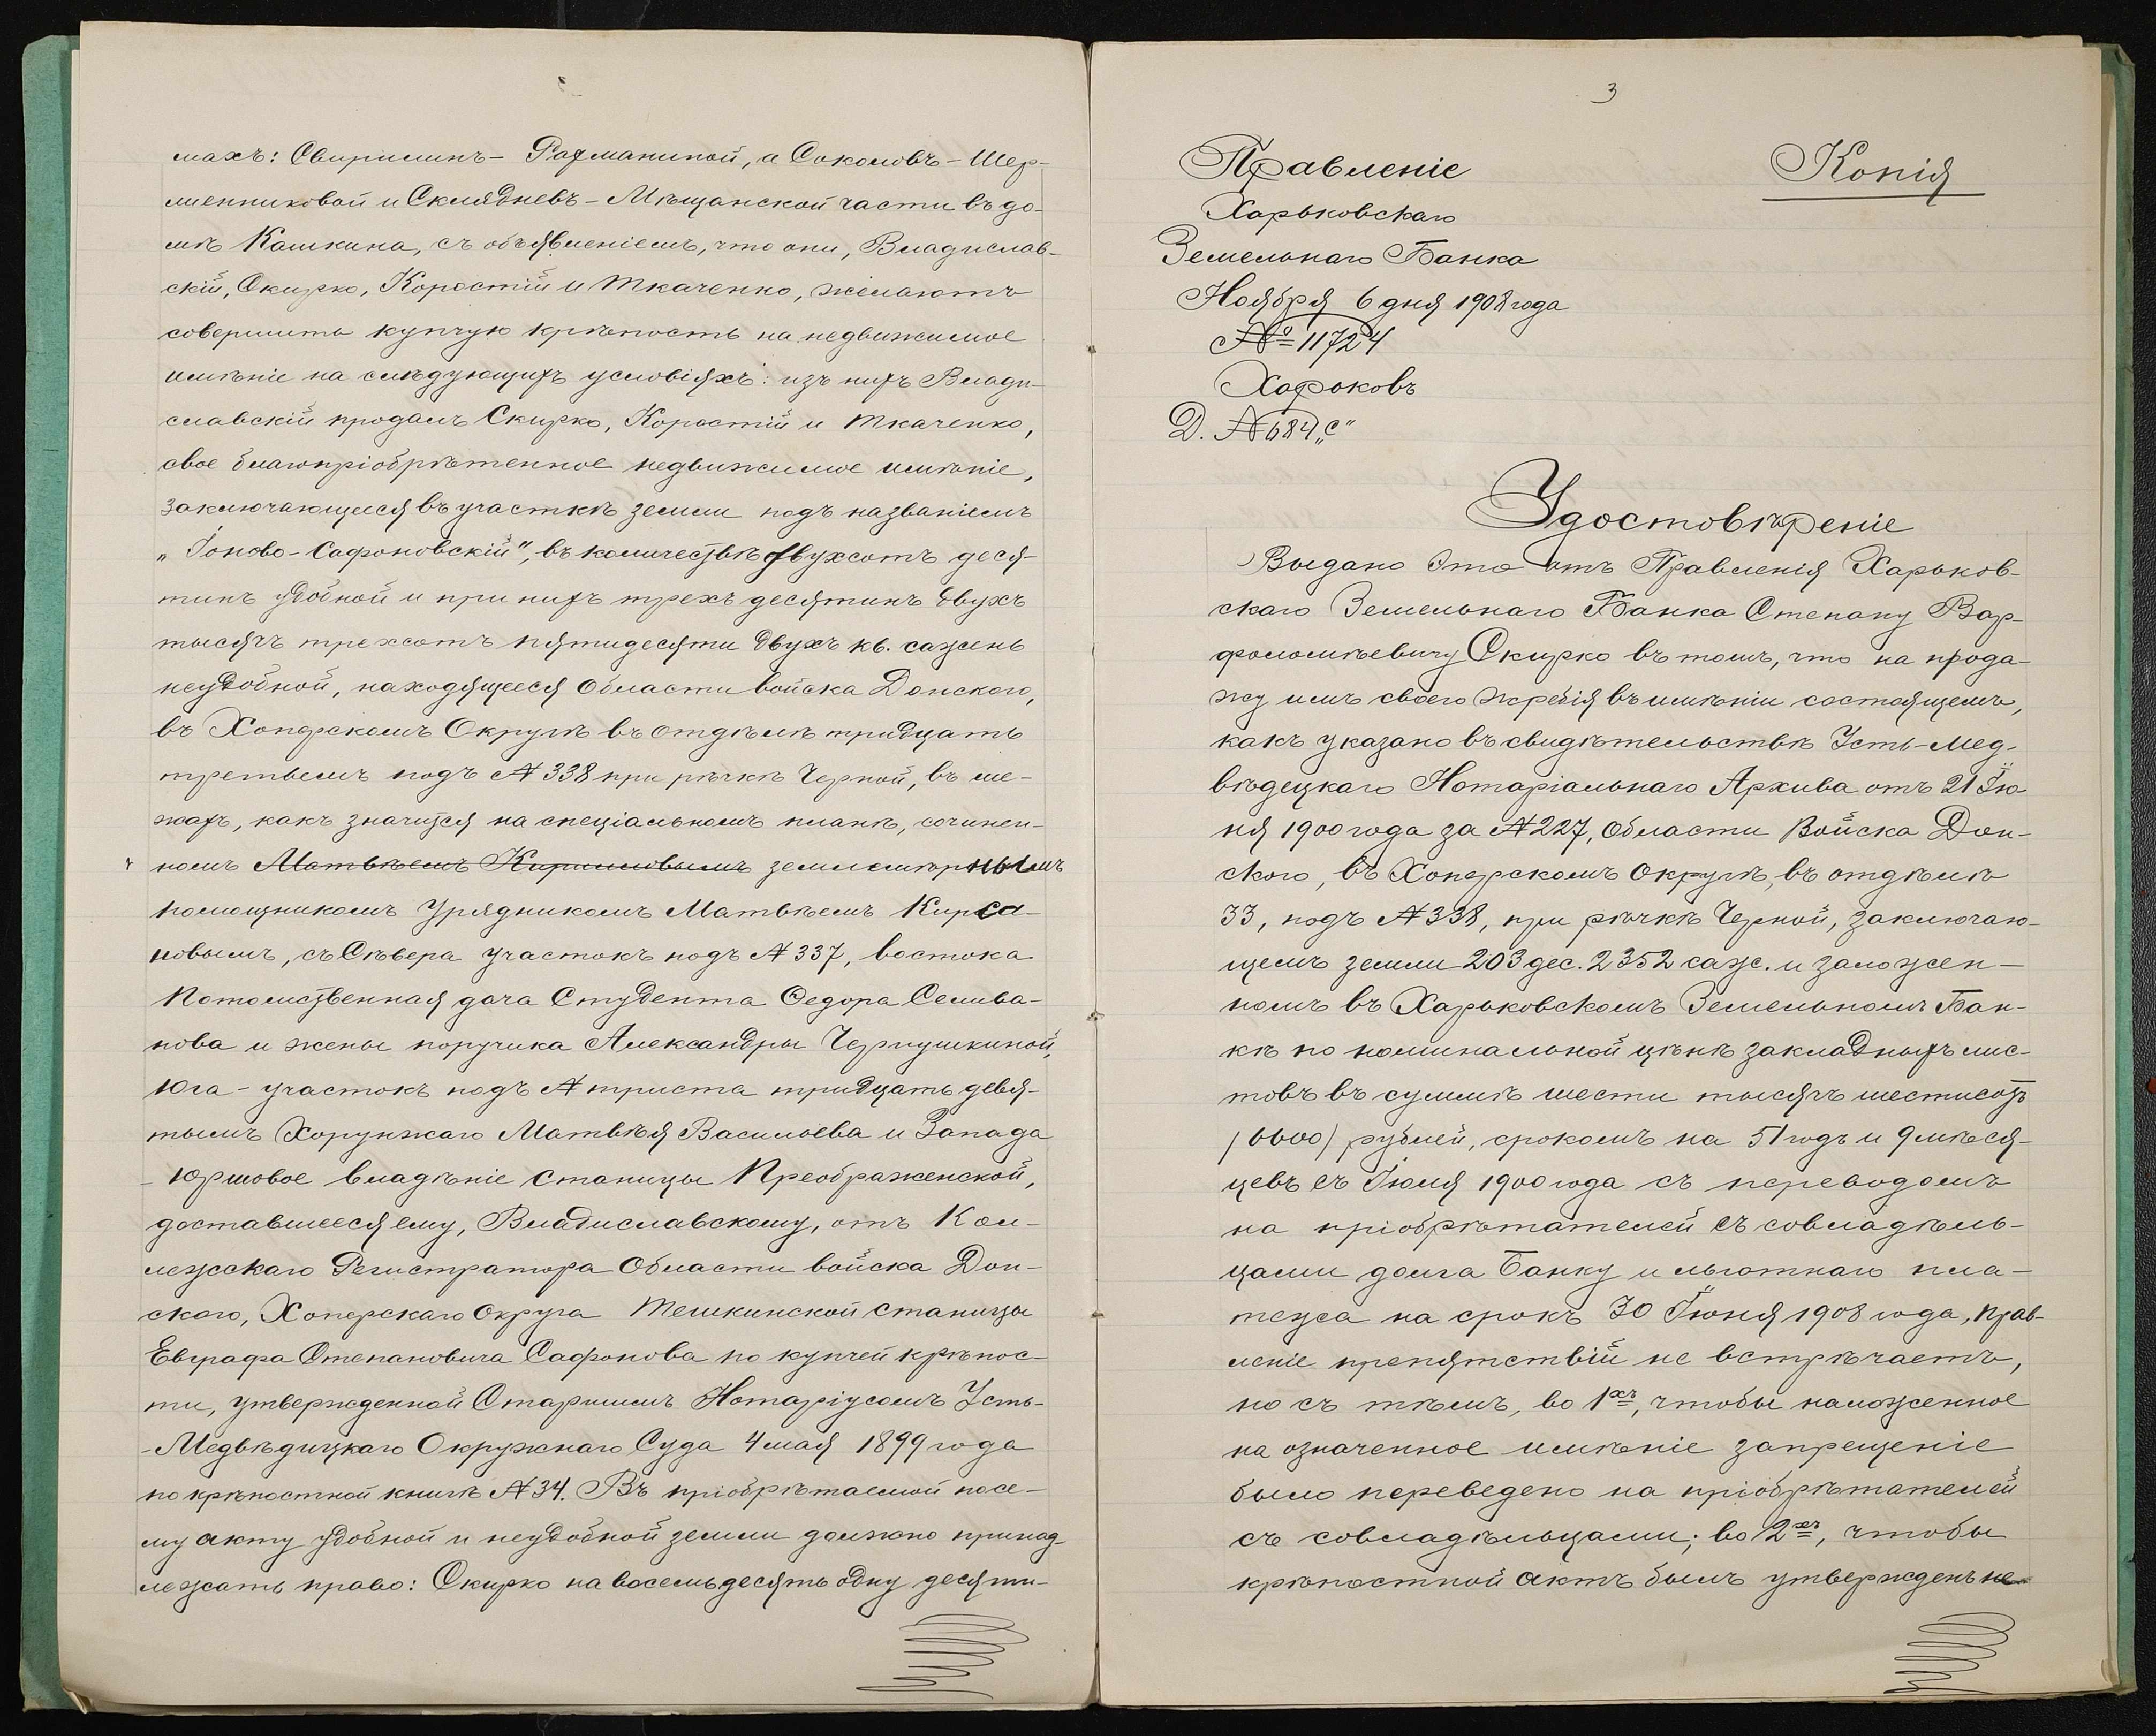 махъ: Свиримипъ - Рахманиной, а Соколовъ - Шер-
шенниковой и Скляднев - Мѣщанской части въ до-
мѣ Кашкина, съ объявленіемъ, что они, Владислав-
скій, Скирко, Коростій и Ткаченко, желаютъ
совершить купчую крѣпость на недвижимое
имѣніе на слѣдующихъ условіяхъ: изъ нихъ Влади-
славскій продалъ Скирко, Коростій и Ткаченко,
свое благопріобрѣтенное недвижимое имѣніе,
заключающееся въ участкѣ земли подъ названіемъ
„Іоново-Сафоновскій", въ количествѣ двухсотъ деся-
тинъ удобной и при нихъ трехъ десятинъ двухъ
тысячъ трехсотъ пятидесяти двухъ кв. сажень
неудобной, находящееся Области войска Донского,
въ Хоперскомъ Округѣ въ отдѣлѣ тридцать
третьемъ подъ № 338 при рѣчкѣ Черной, въ ме-
жахъ, какъ значится на спеціальномъ планѣ, сочинен-
номъ Матвѣемъ Кирилловымъ землемѣрнымъ
помощникомъ Урядникомъ Матвѣемъ Кирса-
новымъ, съ Сѣвера участокъ подъ № 337, востока
Потомственная дача Студента Ѳедора Селива-
нова и жены поручика Александры Чернушкиной,
Юга - участокъ подъ № триста тридцать девя-
тымъ Хорунжаго Матвѣя Васильева и Запада
- Юртовое владѣніе станицы Преображенской,
доставшееся ему, Владиславскому, отъ Кол-
лежскаго Регистратора Области войска Дон-
ского, Хоперскаго Округа Тешкинской станицы
Евграфа Степановича Сафонова по купчей крѣпос-
ти, утвержденной Старшимъ Нотаріусомъ Усть-
-Медвѣдицкаго Окружнаго Суда 4 мая 1899 года
по крѣпостной книгѣ № 34. Въ пріобрѣтаемой по се-
му акту удобной и неудобной земли должно принад-
лежать право: Скирко на восемьдесять одну десяти-
3
Правленіе
Харьковскаго
Земельнаго Банка
Ноября 6 дня 1908 года
№ 11724
Харьковъ
Д. № 684 „С"
Копія
Удостовѣреніе
Выдано это отъ Правленія Харьков-
скаго Земельнаго Банка Степану Вар-
фоломѣевичу Скирко въ томъ, что на прода-
жу имъ своего жребія въ имѣніи состоящемъ,
какъ указано въ свидѣтельствѣ Усть-Мед-
вѣдецкаго Нотаріальнаго Архива отъ 21 Ію-
ня 1900 года за № 227, Области Войска Дон-
ского, въ Хоперскомъ округѣ, въ отдѣлѣ
33, подъ № 338, при рѣчкѣ Черной, заключаю-
щемъ земли 203 дес. 2352 саж. и заложен-
номъ въ Харьковскомъ Земельномъ Бан-
кѣ по номинальной цѣнѣ закладныхъ лис-
товъ въ суммѣ шести тысячъ шестисотъ
/6600/ рублей, срокомъ на 51 годъ и 9 мѣся-
цевъ съ Іюля 1900 года съ переводомъ
на пріобрѣтателей съ совладѣль-
цами долга Банку и льготнаго пла-
тежа на срокъ 30 Іюня 1908 года, Прав-
леніе препятствій не встрѣчаетъ,
но съ тѣмъ, во 1хъ, чтобы наложенное
на означенное имѣніе запрещеніе
было переведено на пріобрѣтателей
съ совладѣльцами; во 2хъ, чтобы
крѣпостной актъ былъ утвержденъ не